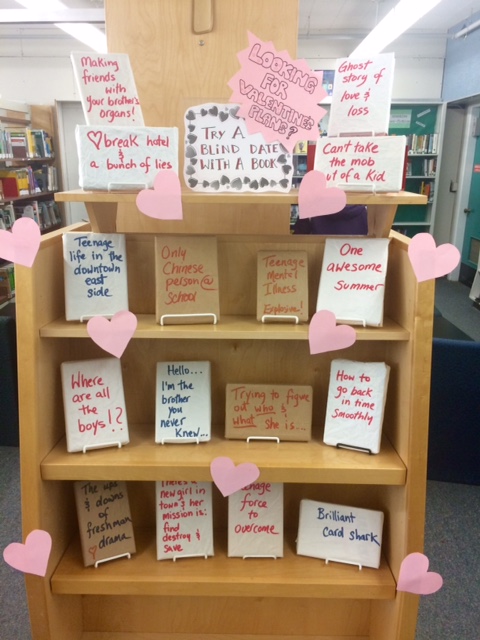 Making
friends
with
your brother's
organs!
LOOKING
FOR
VALENTINE'S
PLANS?
Ghost
story of
love &
loss
♡break hotel
&
a bunch of lies
TRY A
BLIND DATE
WITH A BOOK
Can't take
the mob
out of a Kid
Teenage
life in the
downtown
east
side
Only
Chinese
person @
School
Teenage
mental
Illness
Explosion!
One
awesome
Summer
Where
are all
the
boys!?
Hello...
I'm the
brother
you
never
Knew...
Trying to figure
out who &
what she is...
How to
go back
in time
Smoothly
The ups
& downs
of
freshman
♡ drama
There's a
new girl in
town & her
mission is:
find
destroy &
save
force
to
overcome
Brilliant
Card shark